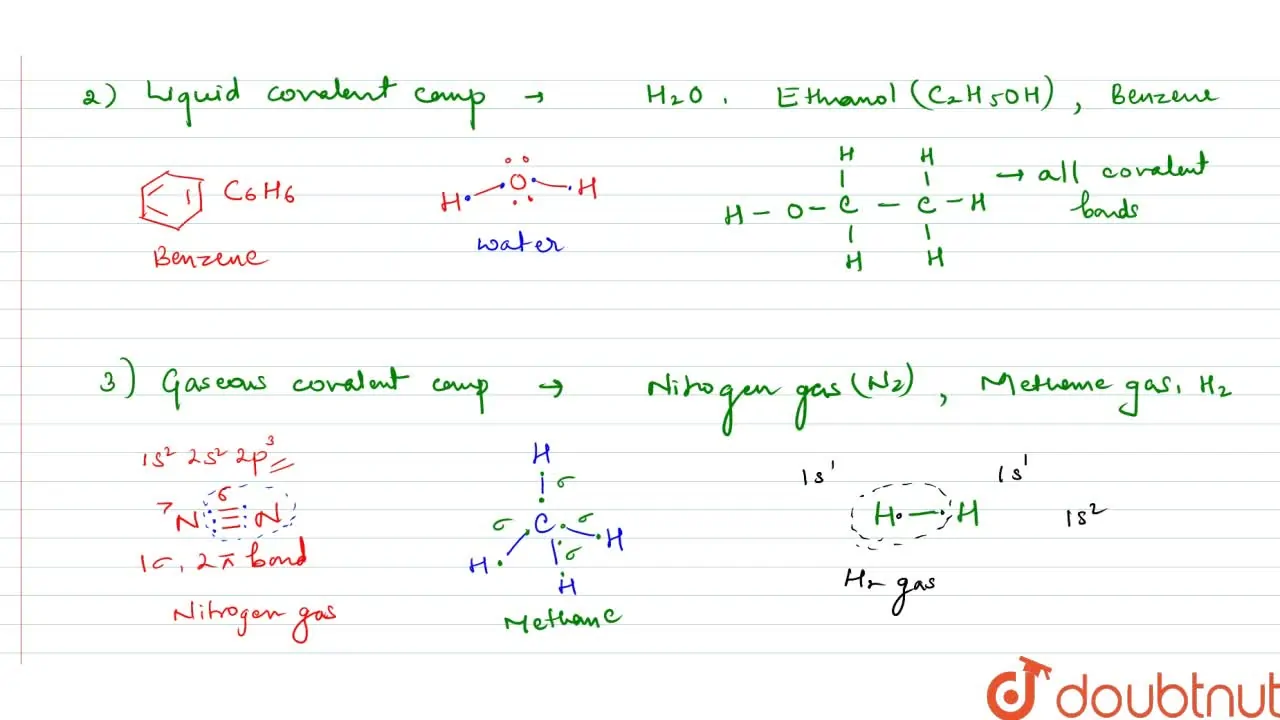 2) Liquid covalent comp → H2O. Ethanol (C2H5OH), Benzene
C6H6
Benzene
H O H
water
H H
H - O - C - C - H → all covalent bonds
H H
3) Gaseous covalent comp → Nitrogen gas (N2), Methane gas, H2
1s² 2s² 2p³
σ
7N ≡ N
1σ, 2π bond
Nitrogen gas
H
σ
σ C σ H
H σ
H
Methane
1s¹ 1s¹
H — H 1s²
H2 gas
doubtnut